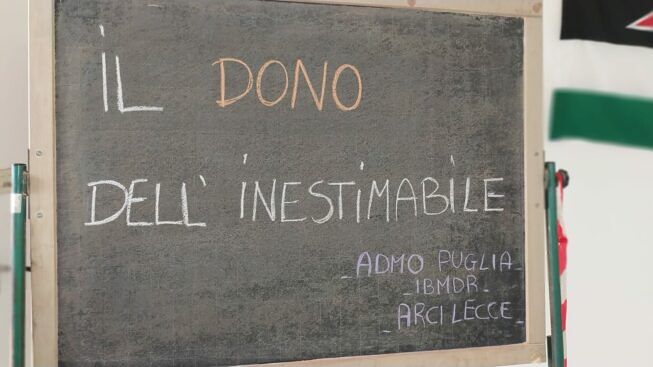 iL DONO
DELL' iNESTiMABiLE
- ADMO PUGLIA -
- IBMDR -
- ARCI LECCE -